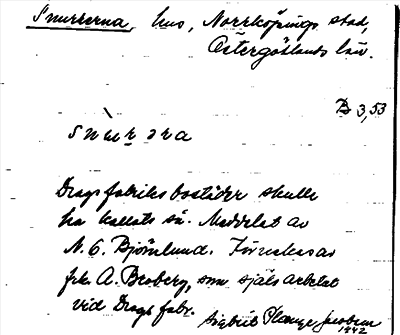 Snurrorna, hus, Norrköpings stad,
Östergötlands län.
B 3,53
snuror a
Dragsfabriks bostäder skulle
ha kallats så. Meddelat av
N. G. Björnlund. Förnekas av
frk. A. Broberg, som själv arbetat
vid Drags fabr.
1942